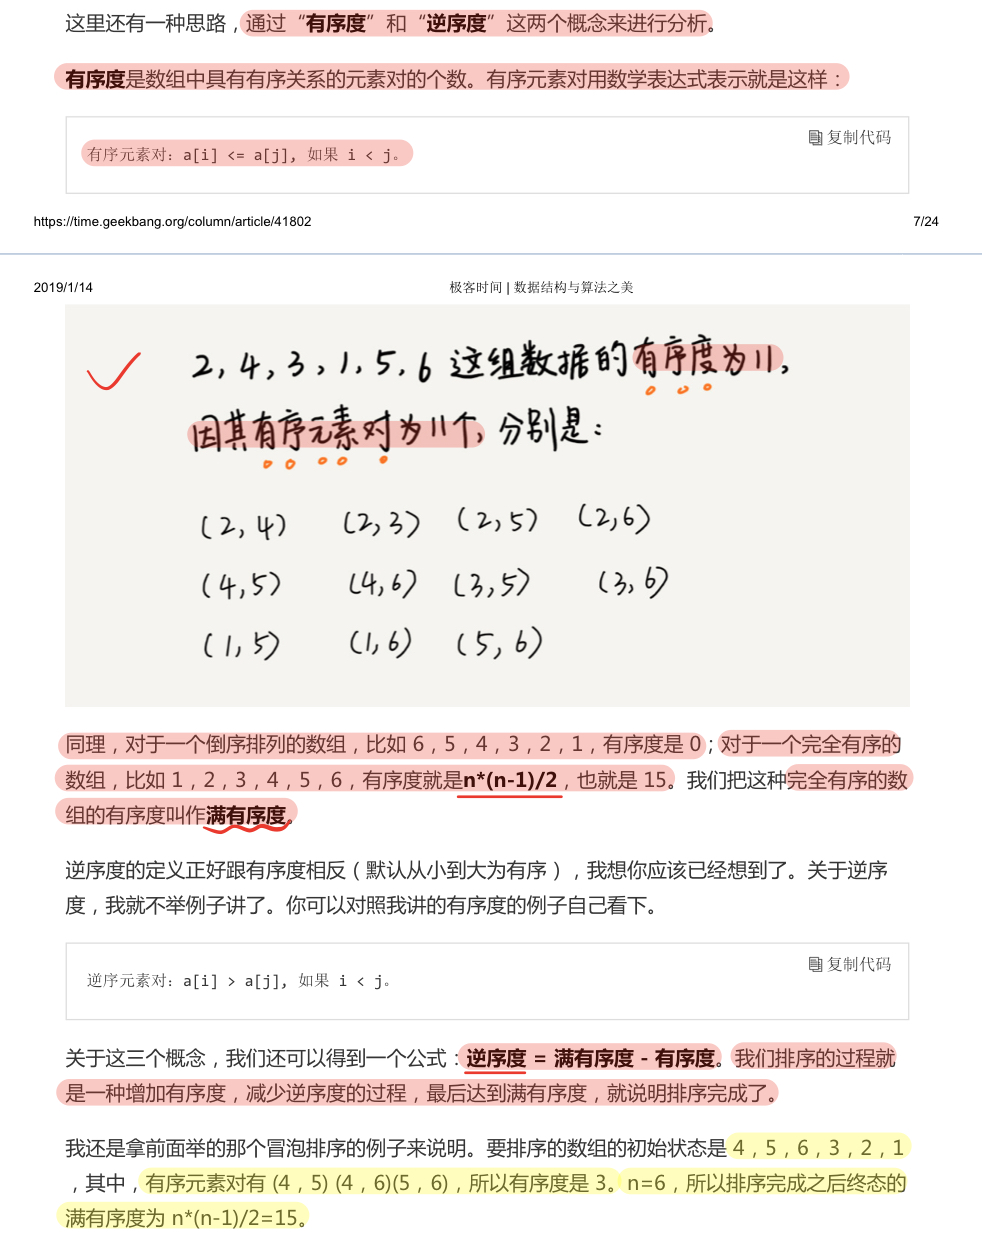 这里还有一种思路，通过“有序度”和“逆序度”这两个概念来进行分析。
有序度是数组中具有有序关系的元素对的个数。有序元素对用数学表达式表示就是这样：
复制代码
有序元素对：a[i] <= a[j], 如果 i < j。
https://time.geekbang.org/column/article/41802 7/24
2019/1/14 极客时间 | 数据结构与算法之美
2, 4, 3, 1, 5, 6 这组数据的有序度为11,
因其有序元素对为11个, 分别是：
(2, 4) (2, 3) (2, 5) (2, 6)
(4, 5) (4, 6) (3, 5) (3, 6)
(1, 5) (1, 6) (5, 6)
同理，对于一个倒序排列的数组，比如 6，5，4，3，2，1，有序度是 0；对于一个完全有序的
数组，比如 1，2，3，4，5，6，有序度就是n*(n-1)/2，也就是 15。我们把这种完全有序的数
组的有序度叫作满有序度。
逆序度的定义正好跟有序度相反（默认从小到大为有序），我想你应该已经想到了。关于逆序
度，我就不举例子讲了。你可以对照我讲的有序度的例子自己看下。
复制代码
逆序元素对：a[i] > a[j], 如果 i < j。
关于这三个概念，我们还可以得到一个公式：逆序度 = 满有序度 - 有序度。我们排序的过程就
是一种增加有序度，减少逆序度的过程，最后达到满有序度，就说明排序完成了。
我还是拿前面举的那个冒泡排序的例子来说明。要排序的数组的初始状态是 4，5，6，3，2，1
，其中，有序元素对有 (4，5) (4，6)(5，6)，所以有序度是 3。n=6，所以排序完成之后终态的
满有序度为 n*(n-1)/2=15。